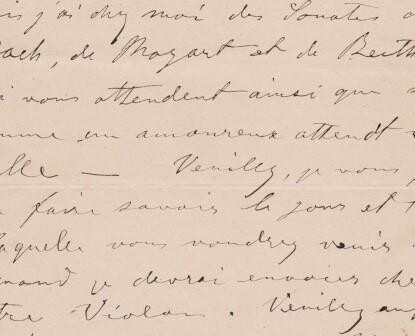 j'ai chez moi des Sonates
ach, de Mozart et de Beeth
i vous attendent ainsi que
mme un amoureux attend
lle — Veuillez, je vous,
faire savoir le jour et
laquelle vous voudrez venir
uand je devrai envoyer che
tre Violon. Veuillez